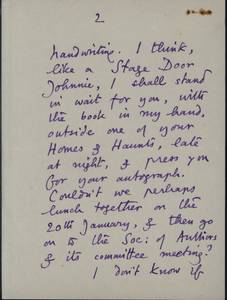 2
handwriting. I think,
like a Stage Door
Johnnie, I shall stand
in wait for you, with
the book in my hand,
outside one of your
Homes & Haunts, late
at night, & press you
for your autograph.
Couldn't we perhaps
lunch together on the
20th January, & then go
on to the Soc: of Authors
& its committee meeting?
I don't know if